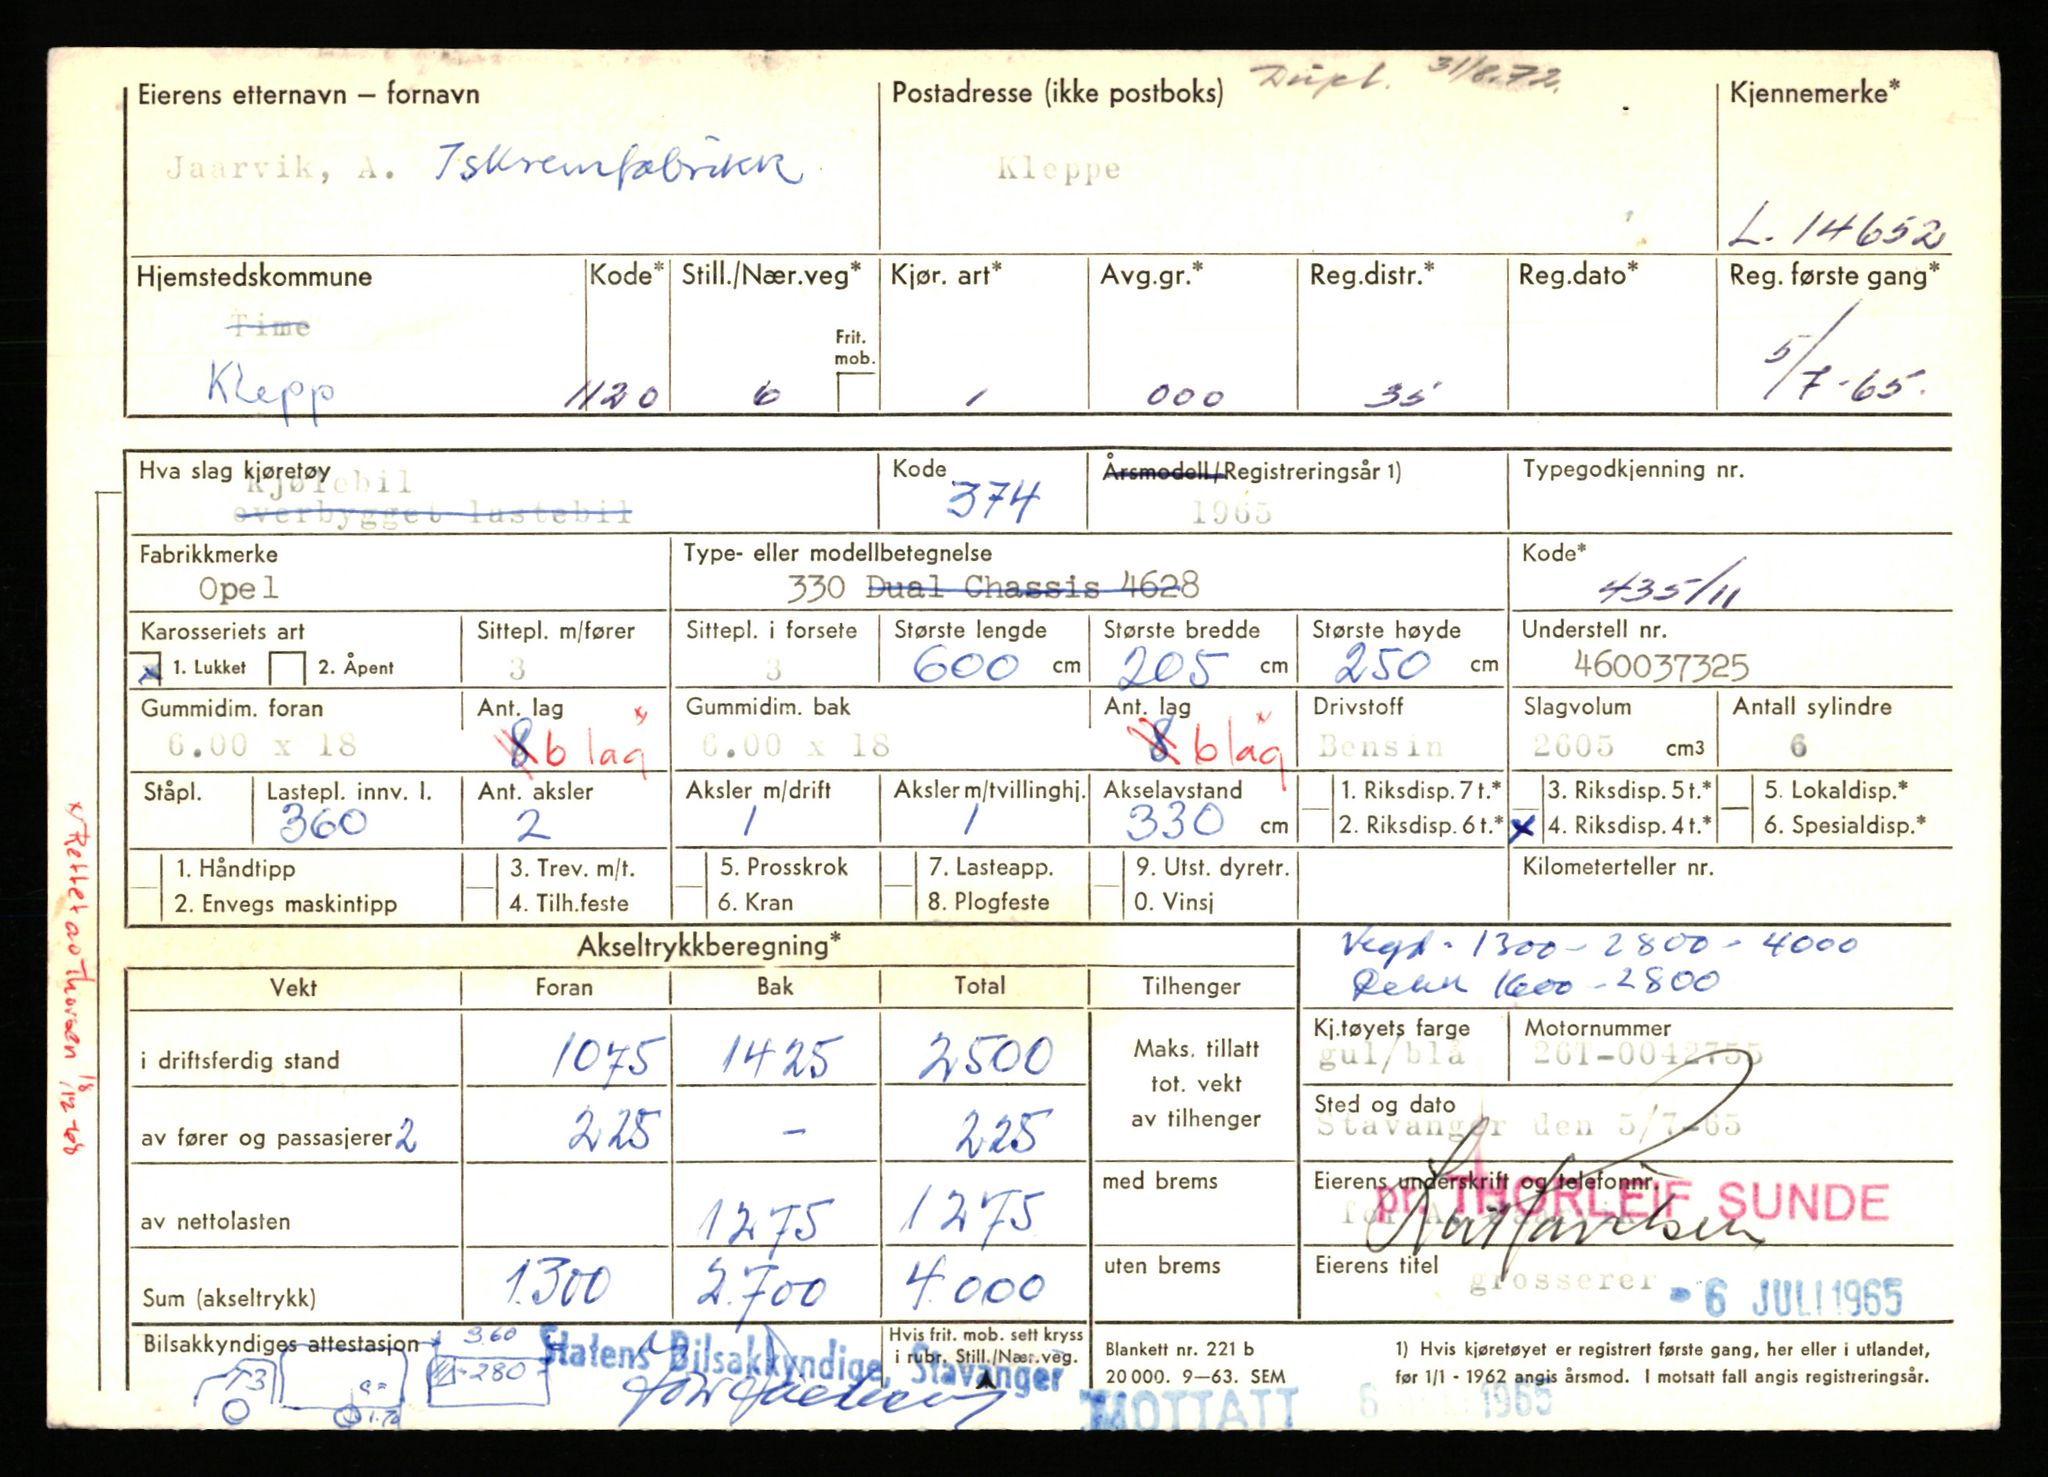 Dupl. 31/8.72.
Eierens etternavn – fornavn Postadresse (ikke postboks) Kjennemerke*
Jaarvik, A. Iskremfabrikk Kleppe
L. 14652
Hjemstedskommune Kode* Still./Nær.veg* Kjør. art* Avg.gr.* Reg.distr.* Reg.dato* Reg. første gang*
Time
Frit. mob.
Klepp 1120 6 1 000 35 5/7-65.
Hva slag kjøretøy Kode Årsmodell/Registreringsår 1) Typegodkjenning nr.
Kjølebil
overbygget lastebil 374 1965
Fabrikkmerke Type- eller modellbetegnelse Kode*
Opel 330 Dual Chassis 4628 435/11
Karosseriets art Sittepl. m/fører Sittepl. i forsete Største lengde Største bredde Største høyde Understell nr.
x 1. Lukket 2. Åpent 3 3 600 cm 205 cm 250 cm 460037325
Gummidim. foran Ant. lag Gummidim. bak Ant. lag Drivstoff Slagvolum Antall sylindre
6.00 x 18 8 6 lag x 6.00 x 18 8 6 lag x Bensin 2605 cm3 6
Ståpl. Lastepl. innv. l. Ant. aksler Aksler m/drift Aksler m/tvillinghj. Akselavstand 1. Riksdisp. 7 t.* 3. Riksdisp. 5 t.* 5. Lokaldisp.*
360 2 1 1 330 cm 2. Riksdisp. 6 t.* x 4. Riksdisp. 4 t.* 6. Spesialdisp.*
1. Håndtipp 3. Trev. m/t. 5. Prosskrok 7. Lasteapp. 9. Utst. dyretr. Kilometerteller nr.
2. Envegs maskintipp 4. Tilh.feste 6. Kran 8. Plogfeste 0. Vinsj
Akseltrykkberegning* Vegd. 1300 - 2800 - 4000
Dekk 1600 - 2800
Vekt Foran Bak Total Tilhenger
Kj.tøyets farge Motornummer
i driftsferdig stand 1075 1425 2500 Maks. tillatt tot. vekt av tilhenger gul/blå 26T-0042755
Sted og dato
av fører og passasjerer 2 225 - 225 Stavanger den 5/7-65
med brems Eierens underskrift og telefonnr.
av nettolasten 1275 1275 pr. THORLEIF SUNDE
for A. Jaarvik
uten brems Eierens titel
Sum (akseltrykk) 1.300 2.700 4.000 grosserer - 6 JULI 1965
Bilsakkyndiges attestasjon 360 Statens Bilsakkyndige, Stavanger Hvis frit. mob. sett kryss i rubr. Still./Nær.veg.
280
Blankett nr. 221 b
20 000. 9–63. SEM
1) Hvis kjøretøyet er registrert første gang, her eller i utlandet,
før 1/1 - 1962 angis årsmod. I motsatt fall angis registreringsår.
MOTTATT 6 1965
x) Rettet av Thorsen 18/12-68